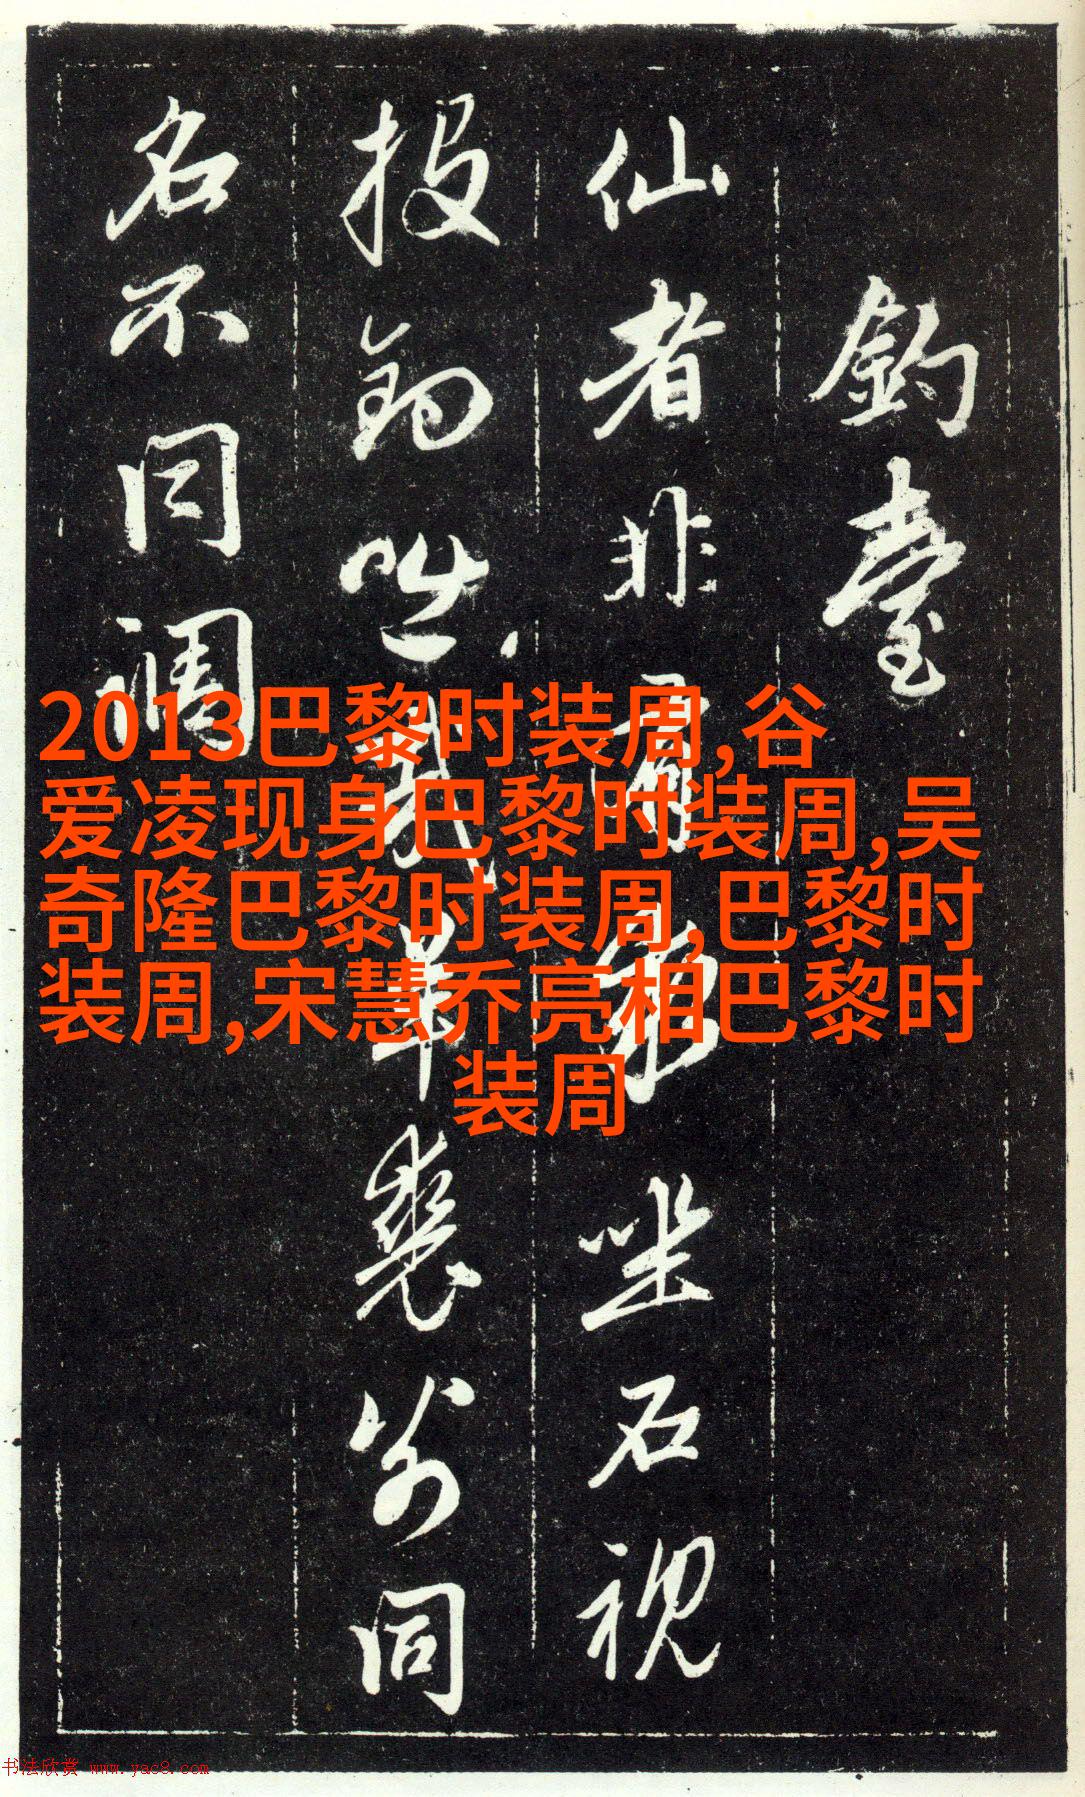 釣臺
仙者非有欲坐石視
投釣咄哉羊裘萬同
名不同調
2013巴黎时装周,谷
爱凌现身巴黎时装周,吴
奇隆巴黎时装周,巴黎时
装周,宋慧乔亮相巴黎时
装周
书法欣赏 www.yac8.com